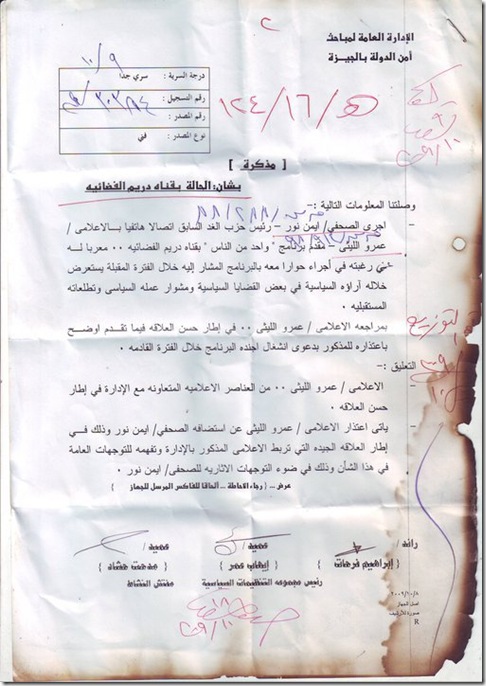 ٢
الإدارة العامة لمباحث
أمن الدولة بالجيزة
درجة السرية : سري جداً
١٠/٩
رقم التسجيل :
رقم المصدر :
نوع المصدر : فني
١٢٤/١٦/هـ
[ مذكرة ]
بشأن: الحالة بقناه دريم الفضائيه
وصلتنا المعلومات التالية :-
- اجرى الصحفي/ ايمن نور – رئيس حزب الغد السابق اتصالا هاتفيا بـالاعلامى /
عمرو الليثى – مقدم برنامج " واحد من الناس " بقناه دريم الفضائيه ٠٠ معربا له
عن رغبته في أجراء حوارا معه بالبرنامج المشار إليه خلال الفترة المقبلة يستعرض
خلاله أراؤه السياسية في بعض القضايا السياسية ومشوار عمله السياسى وتطلعاته
المستقبليه ٠
- بمراجعه الاعلامى / عمرو الليثى ٠٠ في إطار حسن العلاقه فيما تقدم اوضح
باعتذاره للمذكور بدعوى انشغال اجنده البرنامج خلال الفترة القادمه ٠
التعليق :-
- الاعلامى / عمرو الليثى ٠٠ من العناصر الاعلاميه المتعاونه مع الإدارة في إطار
حسن العلاقه ٠
- ياتى اعتذار الاعلامى / عمرو الليثى عن استضافه الصحفي/ ايمن نور وذلك فـي
إطار العلاقه الجيده التي تربط الاعلامى المذكور بالإدارة وتفهمه للتوجهات العامة
في هذا الشأن وذلك في ضوء التوجهات الاثاريه للصحفي/ ايمن نور ٠
عرض ..( رجاء الاحاطة .. الحاقا للفاكس المرسل للجهاز )
رائد / عميد / عميد /
{ إبراهيم فرحات } { إيهاب عمر } { مدحت حشاد }
رئيس مجموعه التنظيمات السياسية مفتش النشاط
٢٠٠٩/١٠/٨
اصل الجهاز
صورة للارشيف
R